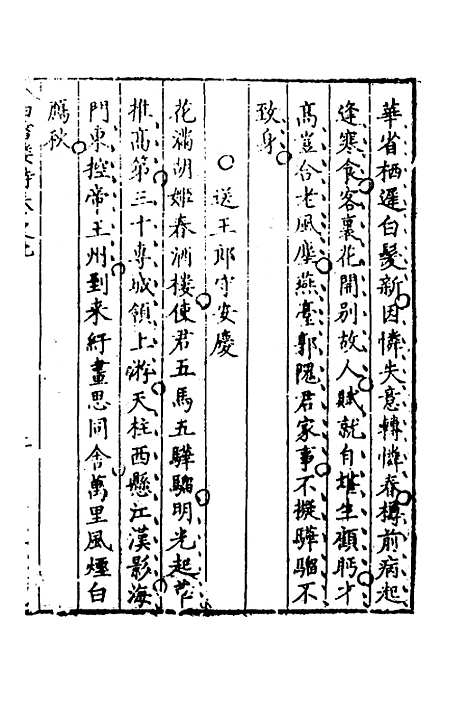 華省栖遲白髮新因憐失意轉憐春樽前病起
逢寒食客裏花開別故人賦就自堪生顧眄才
高豈合老風塵燕臺郭隗君家事不擬驊騮不
致身
送王郎守安慶
花滿胡姬春酒樓使君五馬五驊騮明光起草
推高第三十專城領上游天柱西懸江漢影海
門東控帝王州到來紆畫思同舍萬里風煙白
鴈秋